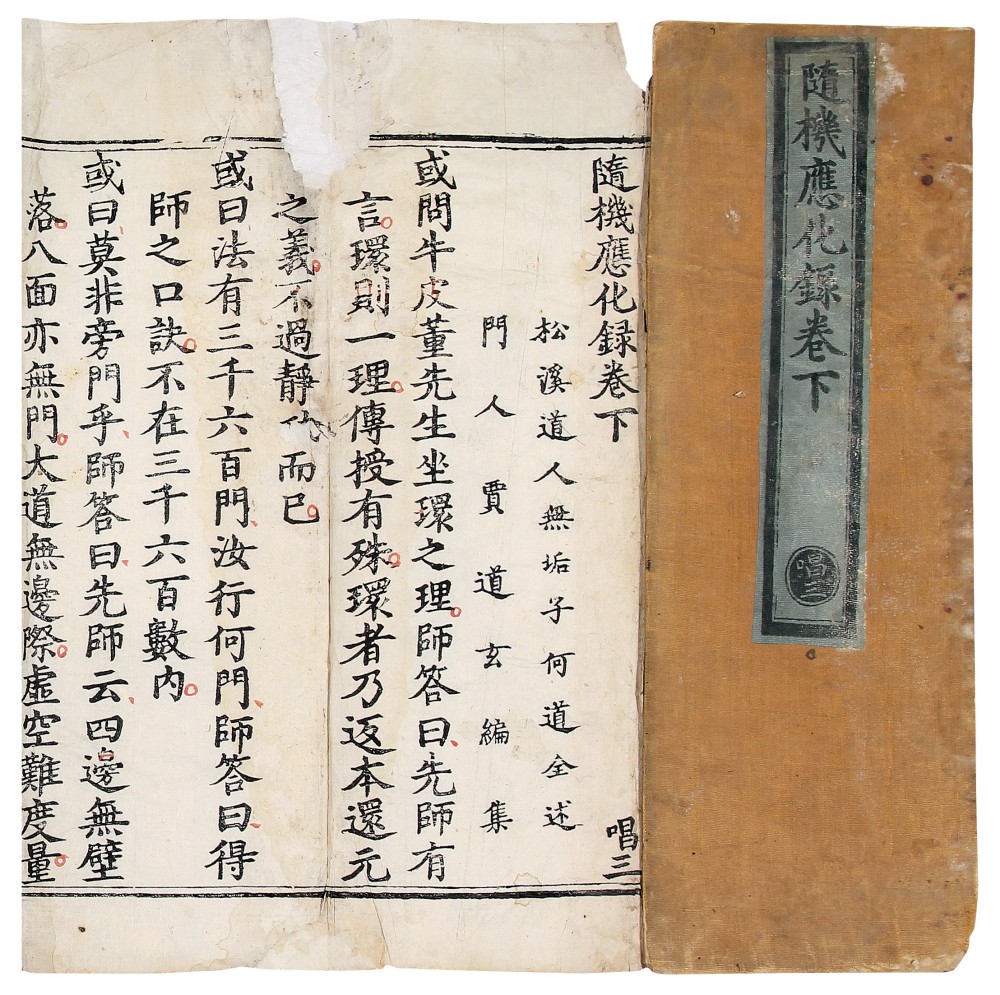 隨機應化錄卷下
唱三
隨機應化録卷下 唱三
松溪道人無垢子何道全述
門人賈道玄編集
或問牛皮董先生坐環之理。師答曰、先師有
言。環則一理。傳授有殊。環者乃返本還元
之義。不過靜 而已。
或曰法有三千六百門、汝行何門、師答曰、得
師之口訣。不在三千六百數内。
或曰莫非旁門乎、師答曰、先師云、四邊無壁
落。八面亦無門。大道無邊際。虛空難度量。